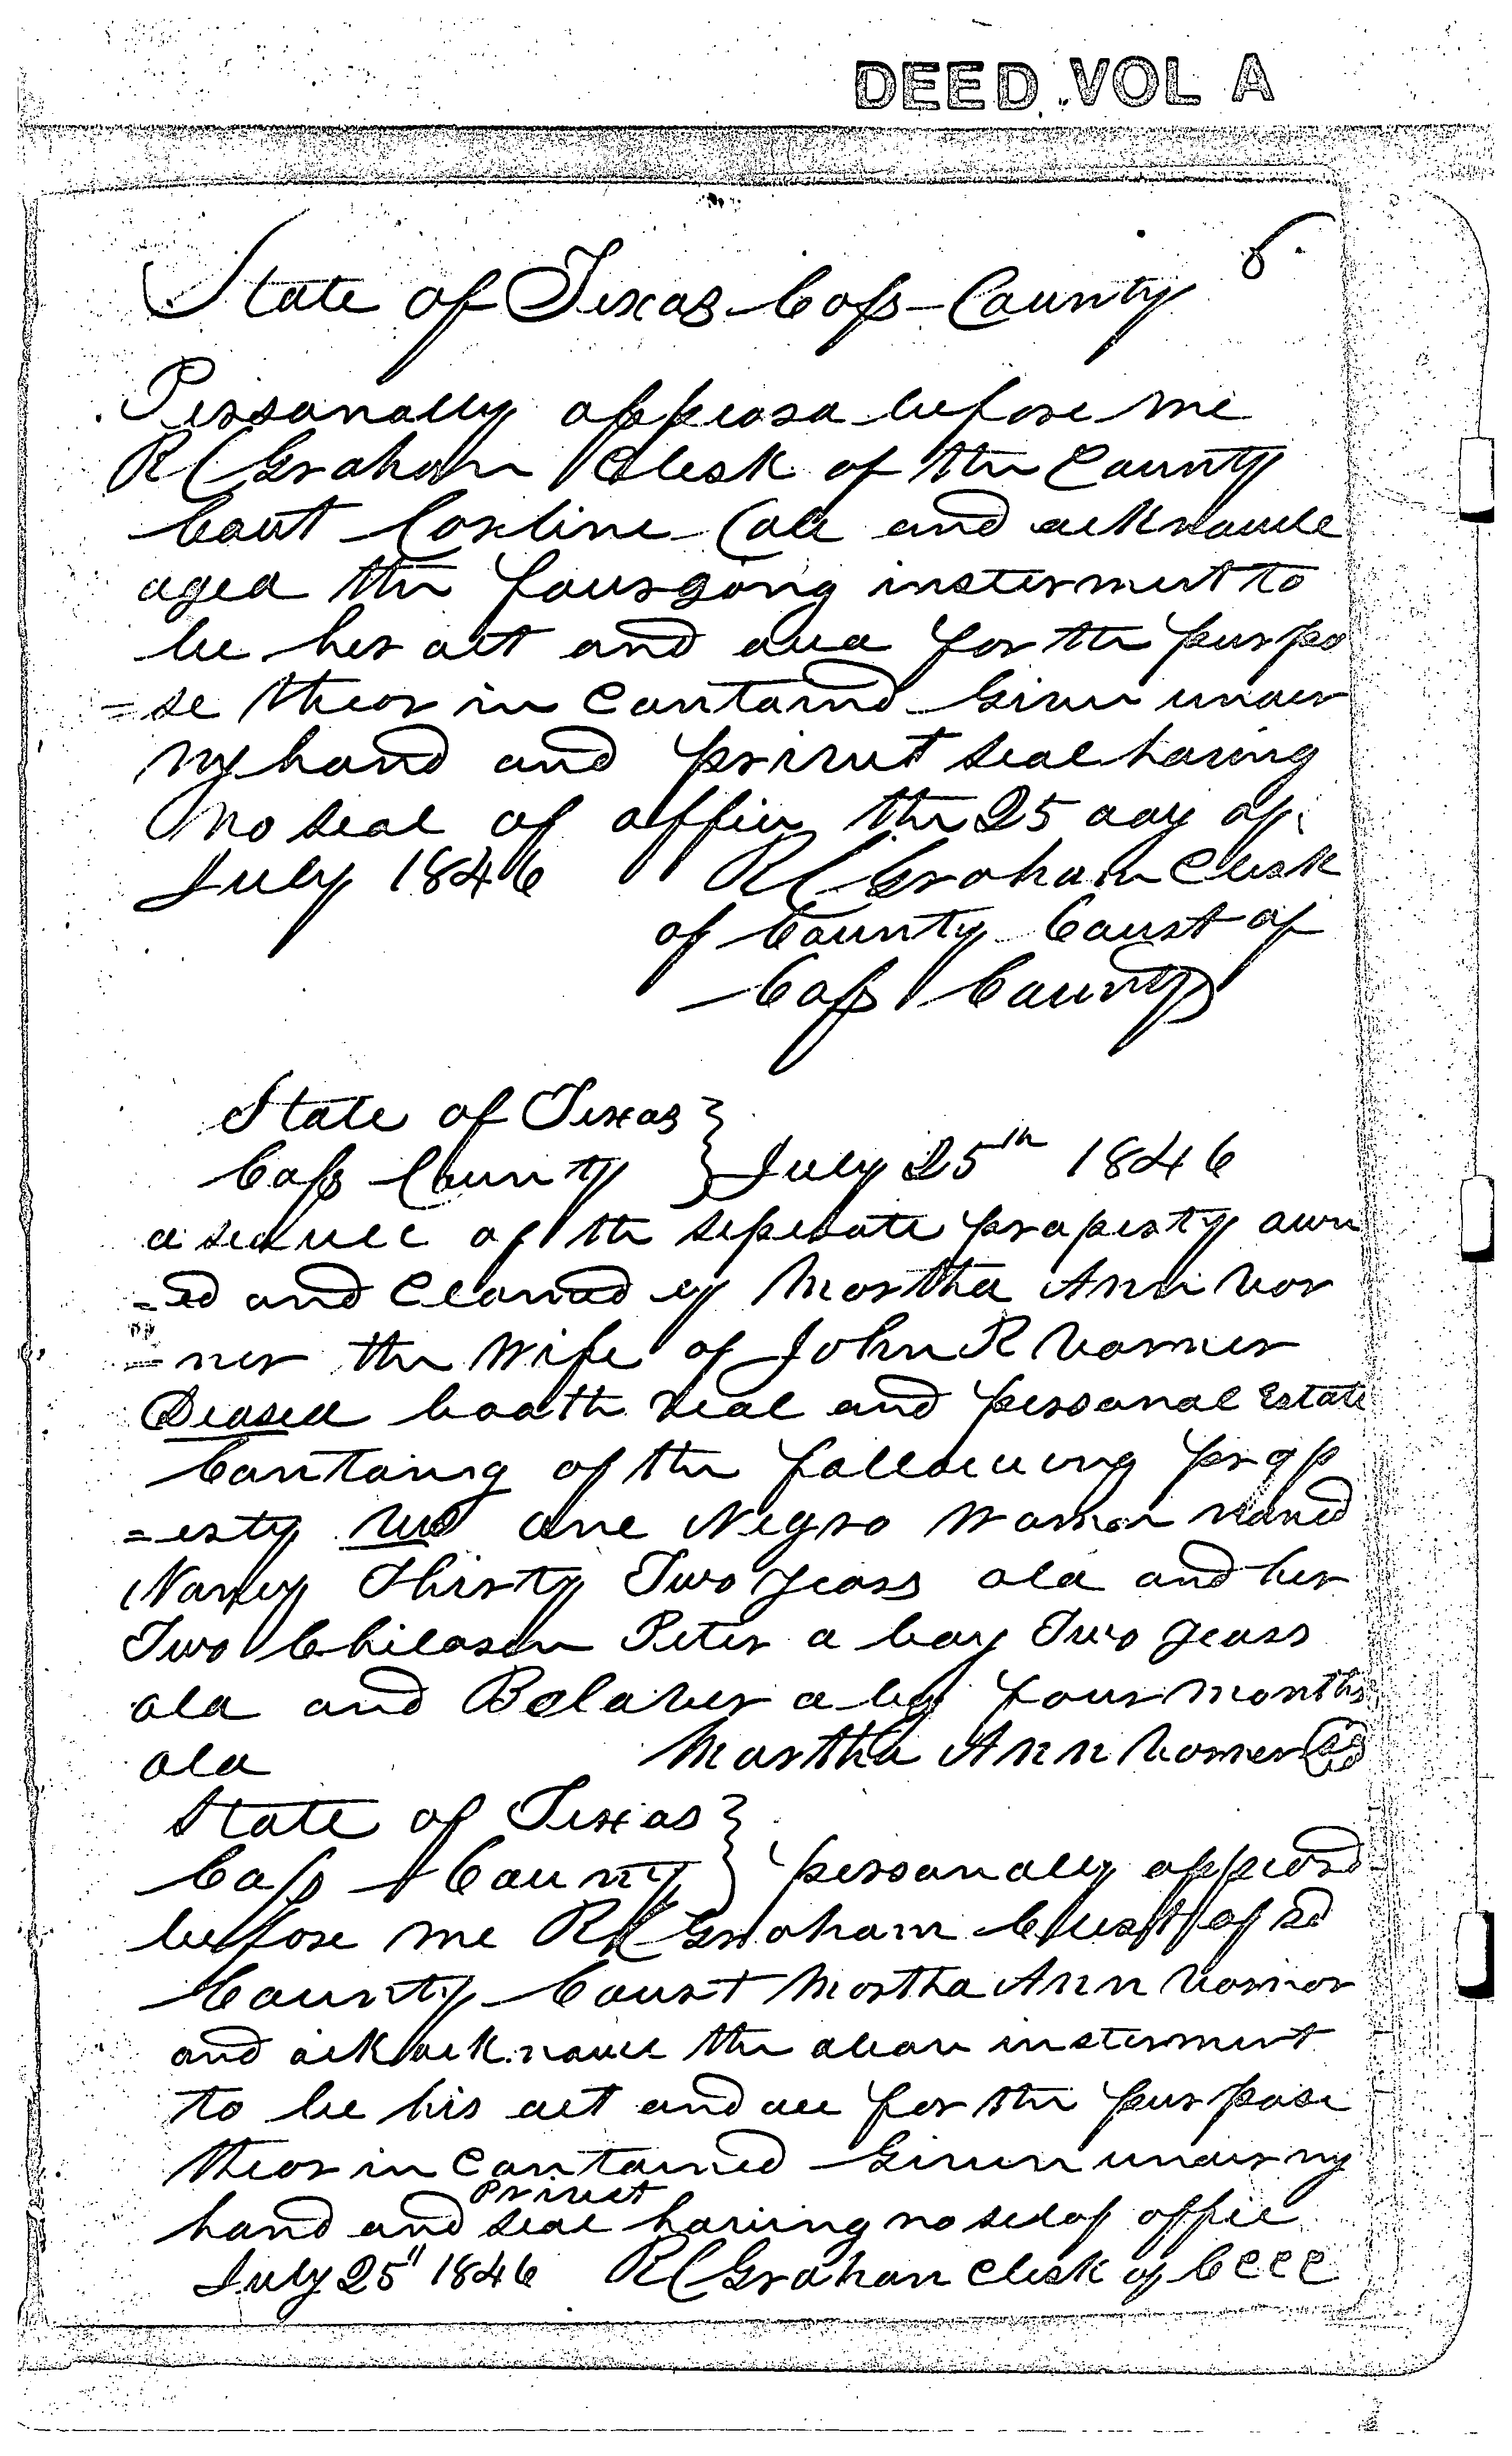 DEED VOL A
8.
State of Texas Cass County
Personally appeard before me
R C Graham Clerk of the County
Cout Coxline Cole and acknowle
dged the fourgoing insterment to
be her act and deed for the purpo
=se theor in Contained Given under
my hand and privet seal having
no seal of office the 25 day of
July 1846 R C Graham Clerk
of County Court of
Cass County
State of Texas }
Cass County } July 25th 1846
a sedule of the seperate property own
=ed and Clamed by Martha Ann Var
=ner the wife of John R Varner
Deased booth real and personal Estate
Containg of the following prop
=erty one Negro woman named
Nancy Thirty Two years old and her
Two Children Peter a boy Two years
old and a boy four months
old Martha Ann Varner
State of Texas }
Cass County } personally appeard
before me R C Graham Clerk of sd
County Court Martha Ann Varner
and ack acknowle the above insterment
to be his act and dee for the purpose
theor in Contained Given under my
hand and privet seal having no sel of office
July 25" 1846 R C Graham Clerk of CCCC